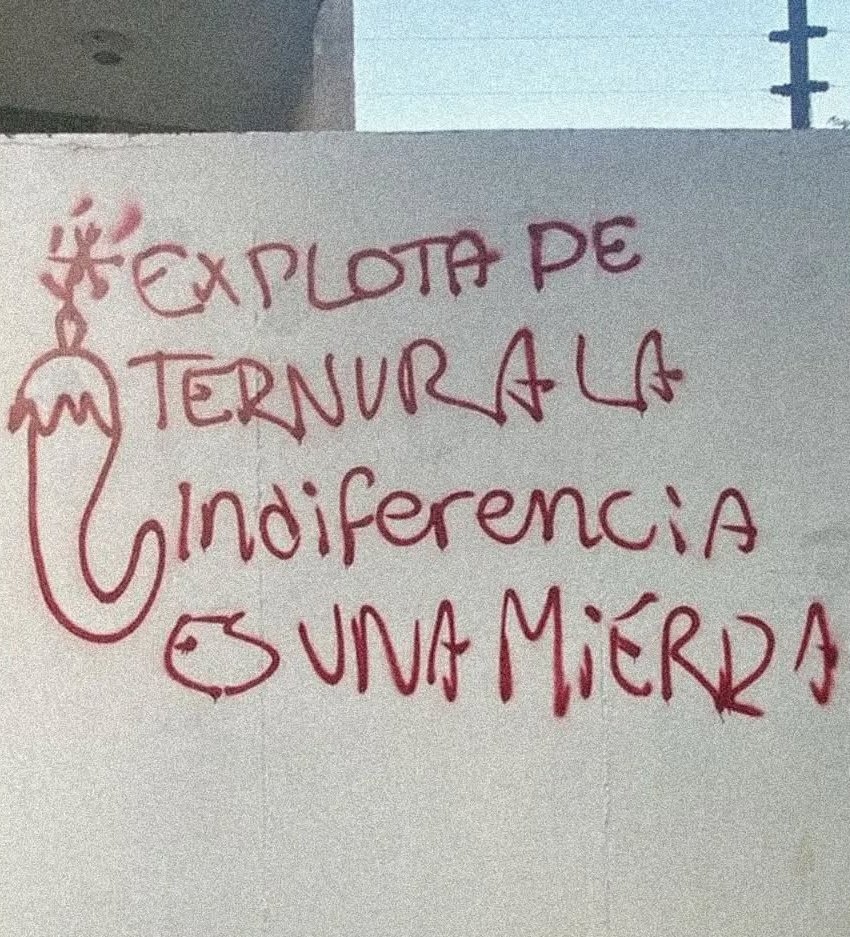 EXPLOTA DE
TERNURA LA
IndiferenciA
ES UNA MiERDA